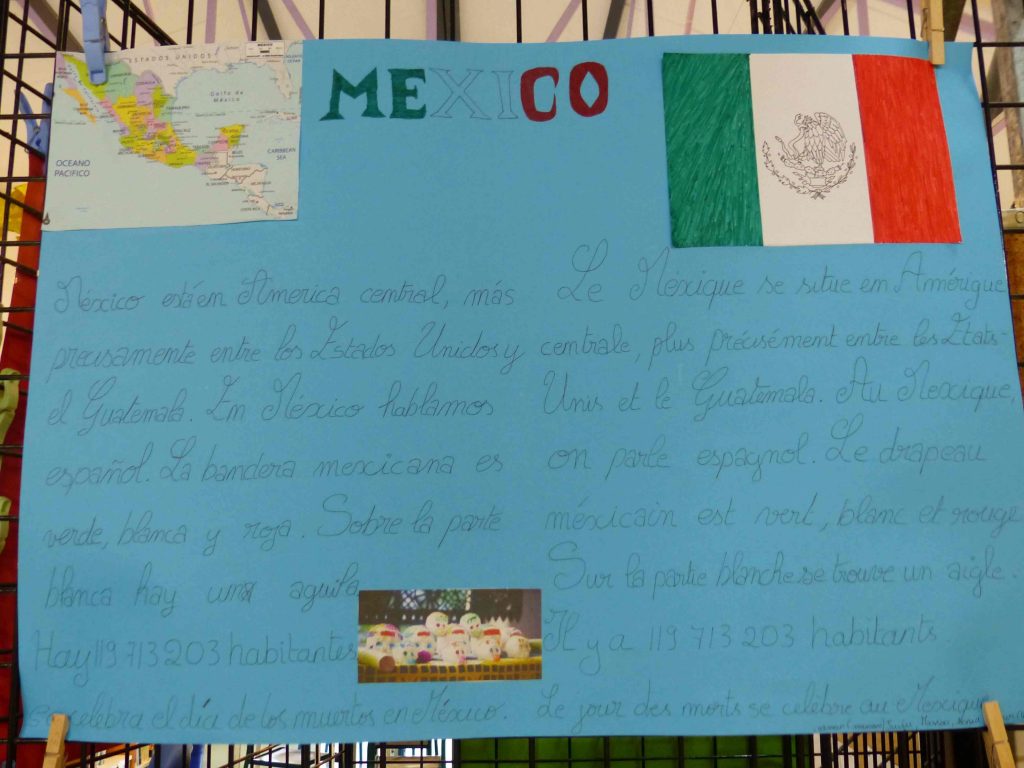 MEXICO
ESTADOS UNIDOS
MÉXICO
Golfo de
México
OCEANO
PACIFICO
CARIBBEAN
SEA
México está en America central, más
precisamente entre los Estados Unidos y
el Guatemala. En México hablamos
español. La bandera mexicana es
verde, blanca y roja. Sobre la parte
blanca hay una aguila
Hay 119 713 203 habitantes
se celebra el día de los muertos en México.
Le Méxique se situe en Amérique
centrale, plus précisément entre les Etats-
Unis et le Guatemala. Au Mexique,
on parle espagnol. Le drapeau
méxicain est vert, blanc et rouge
Sur la partie blanche se trouve un aigle.
Il y a 119 713 203 habitants.
Le jour des morts se célèbre au Mexique